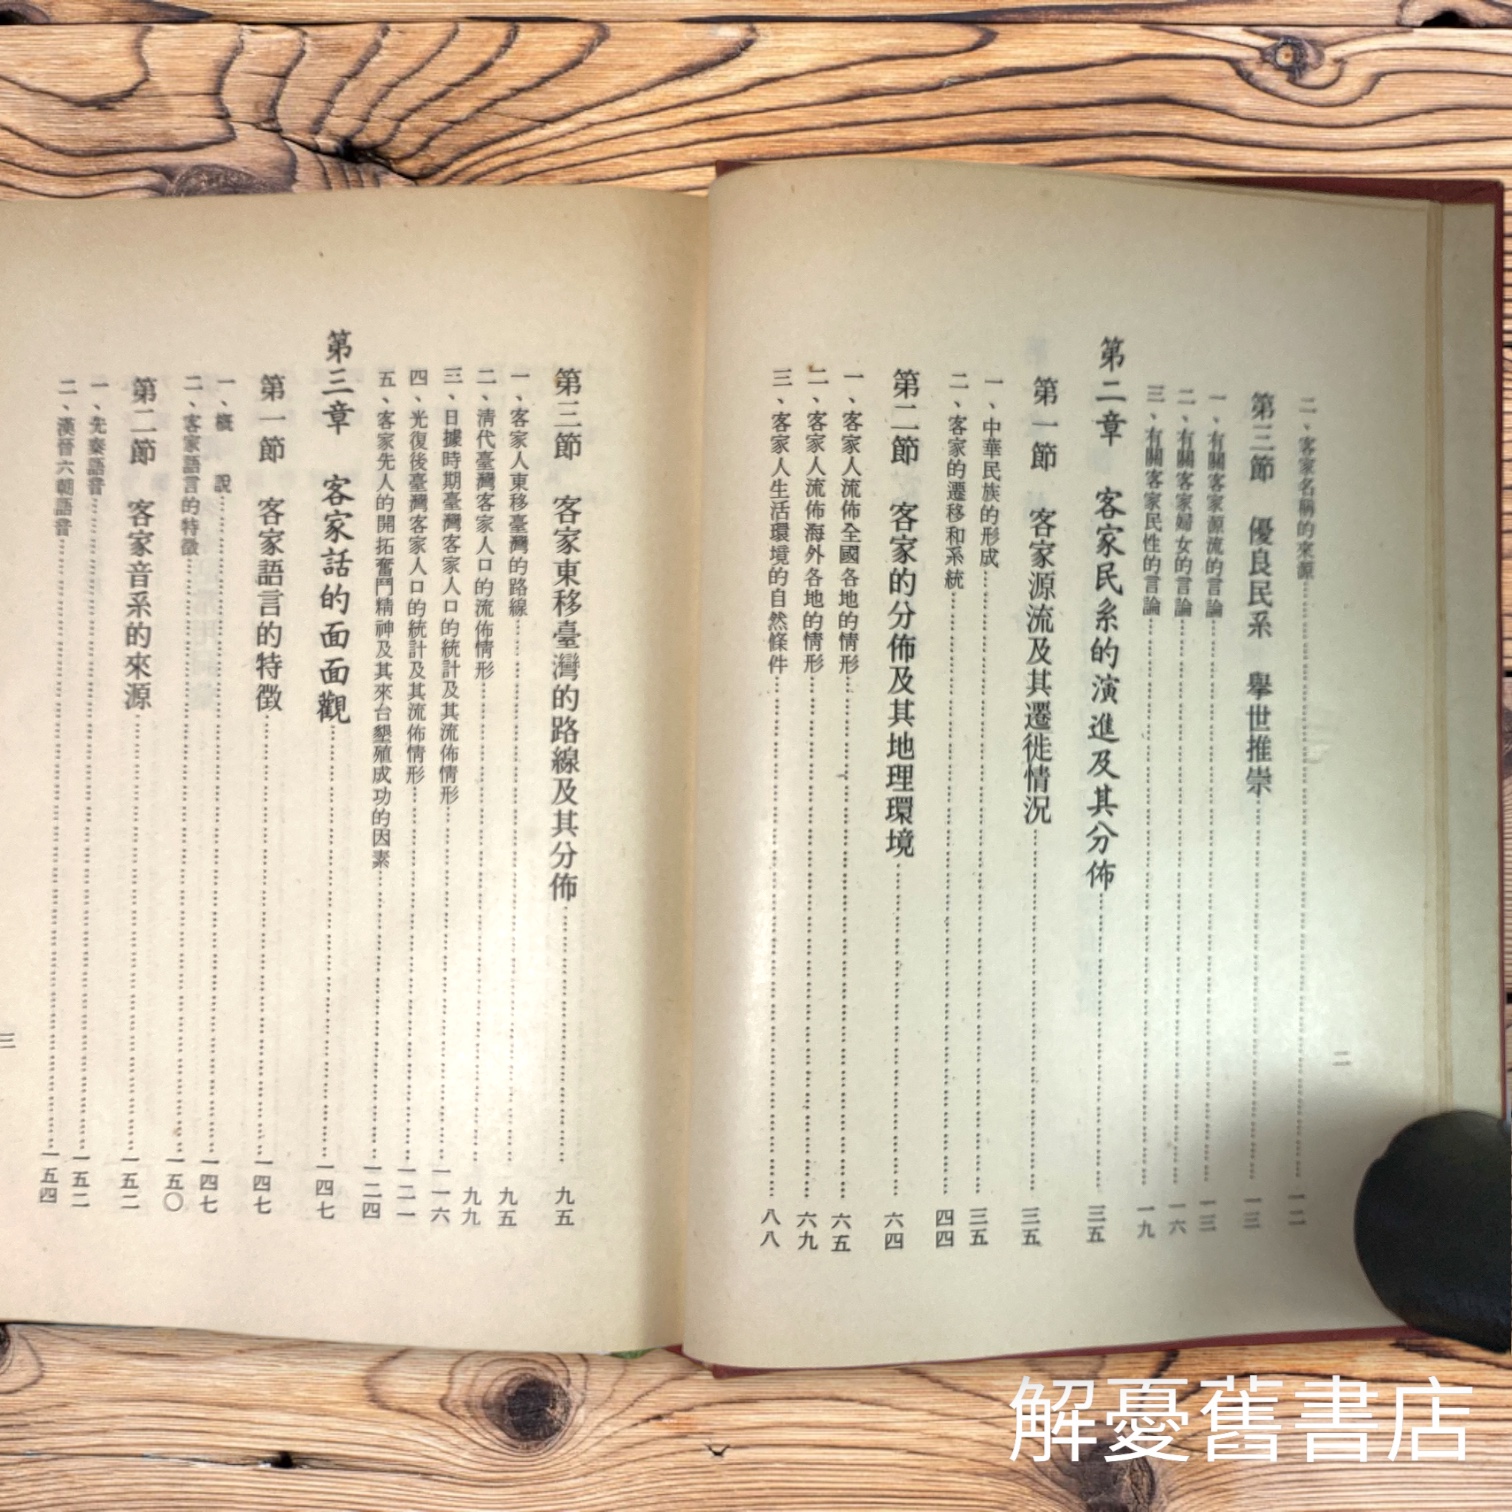 二、客家名稱的來源……一二
第三節　優良民系　舉世推崇……一三
一、有關客家源流的言論……一三
二、有關客家婦女的言論……一六
三、有關客家民性的言論……一九
第二章　客家民系的演進及其分佈……三五
第一節　客家源流及其遷徙情況……三五
一、中華民族的形成……三五
二、客家的遷移和系統……四四
第二節　客家的分佈及其地理環境……六四
一、客家人流佈全國各地的情形……六五
二、客家人流佈海外各地的情形……六九
三、客家人生活環境的自然條件……八八
二
第三節　客家東移臺灣的路線及其分佈……九五
一、客家人東移臺灣的路線……九五
二、清代臺灣客家人口的流佈情形……九九
三、日據時期臺灣客家人口的統計及其流佈情形……一一六
四、光復後臺灣客家人口的統計及其流佈情形……一二一
五、客家先人的開拓奮鬥精神及其來台墾殖成功的因素……一二四
第三章　客家話的面面觀……一四七
第一節　客家語言的特徵……一四七
一、概　說……一四七
二、客家語言的特徵……一五〇
第二節　客家音系的來源……一五二
一、先秦語音……一五二
二、漢晉六朝語音……一五四
三
解憂舊書店